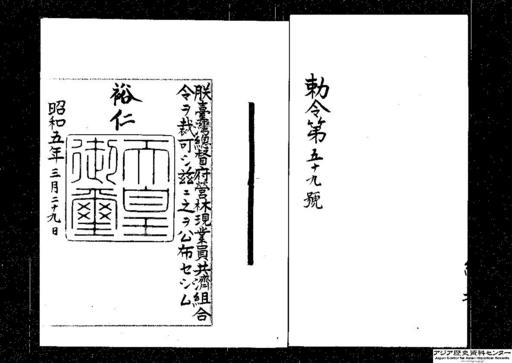 勅令第五十九號
朕臺灣總督府營林現業員共濟組合
令ヲ裁可シ茲ニ之ヲ公布セシム
裕仁
天皇御璽
昭和五年三月二十九日
アジア歴史資料センター
Japan Center for Asian Historical Records